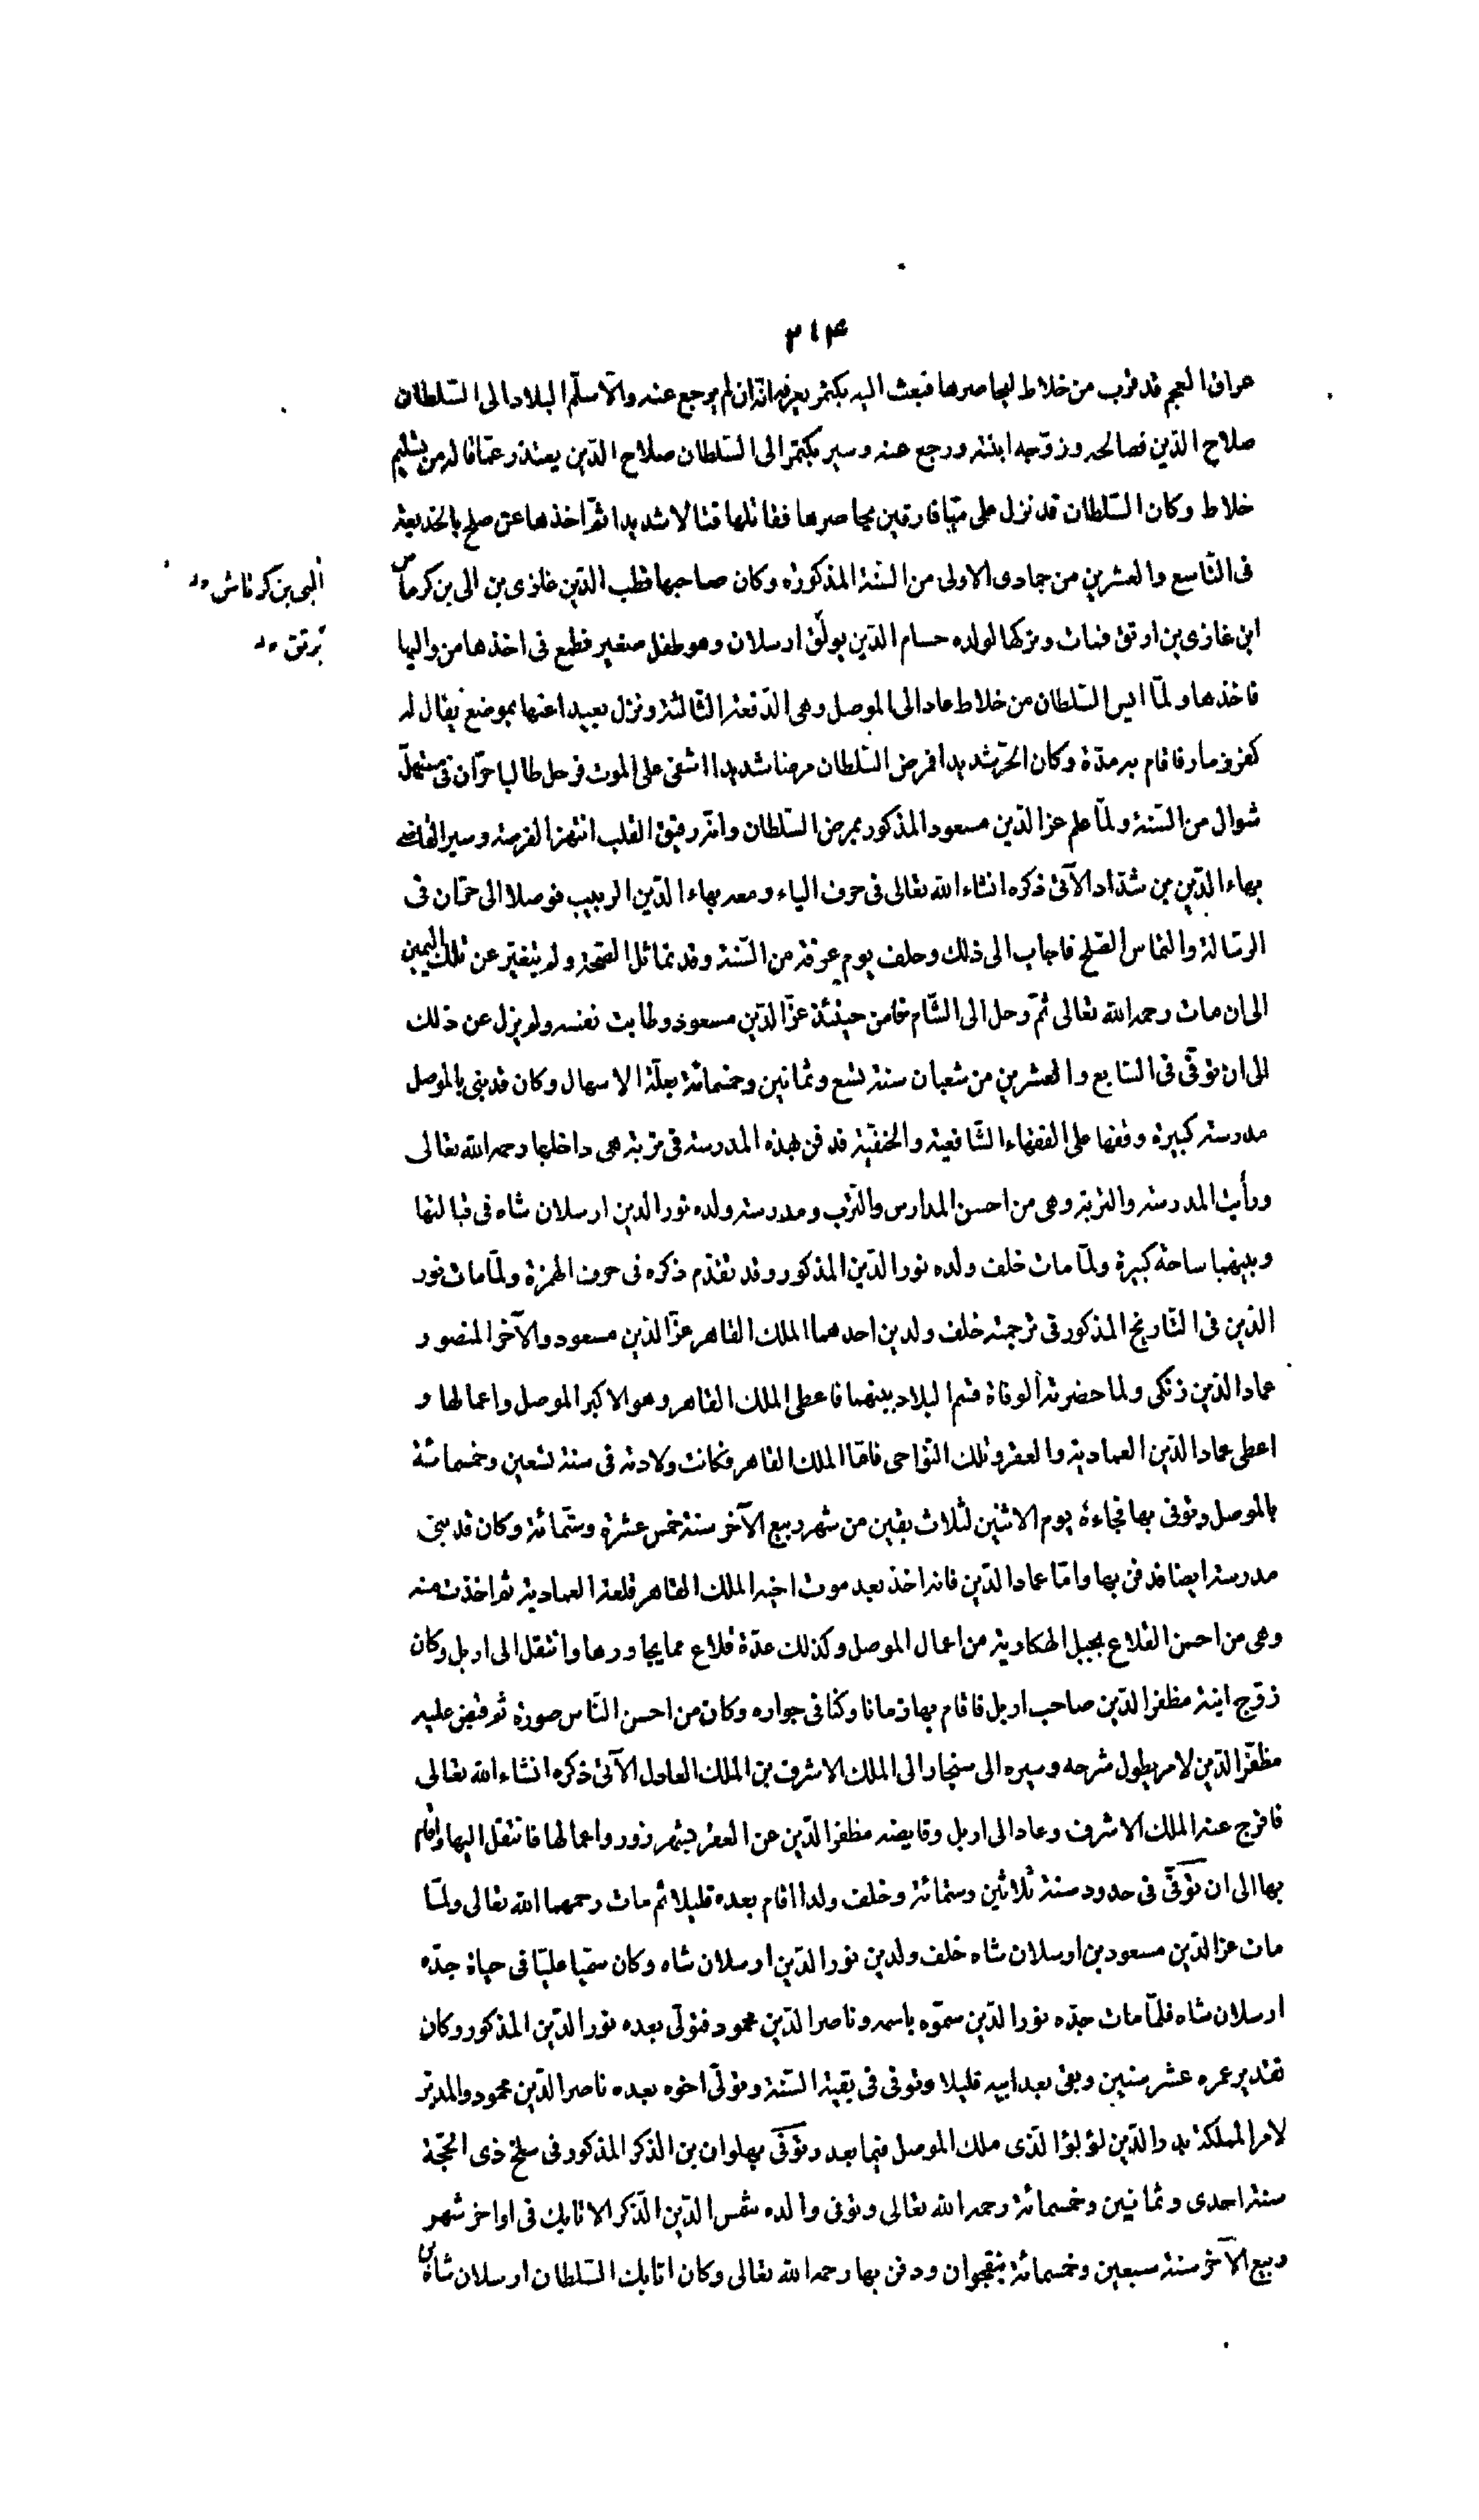 ٢١۴
عراق العجم قد قرب من خلاط ليحاصرها فبعث اليه بكتمر يعرفه انّه ان لم يرجع عنه والّا سلّم البلاد الى السّلطان
صلاح الدّين فصالحه وزوّجه ابنته ورجع عنه وسير بكتمر الى السّلطان صلاح الدّين يعتذر عمّا قاله من تسليم
خلاط وكان السّلطان قد نزل على ميّافارقين يحاصرها فقاتلها قتالا شديدا ثمّ اخذها عن صلح بالخديعة
فى التّاسع والعشرين من جمادى الاولى من السّنة المذكورة وكان صاحبها قطب الدّين غازى بن الى بن كرماس
البى بن كرتاش
ابن غازى بن ارتق فمات وتركها لولده حسام الدّين بولق ارسلان وهو طفل صغير فطمع فى اخذها من واليها
برتق
فاخذها ولمّا ايس السّلطان من خلاط عاد الى الموصل وهى الدّفعة الثّالثة ونزل بعيدا عنها بموضع يقال له
كفر زمار فاقام به مدّة وكان الحرّ شديدا فمرض السّلطان مرضا شديدا اشفى على الموت فرحل طالبا حرّان فى مستهلّ
شوال من السّنة ولمّا علم عز الدّين مسعود المذكور بمرض السّلطان وانّه رقيق القلب انتهز الفرصة وسير القاضى
بهاء الدّين بن شدّاد الآتى ذكره انشاء الله تعالى فى حرف الياء ومعه بهاء الدّين الربيب فوصلا الى حرّان فى
الرسالة والتماس الصّلح فاجاب الى ذلك وحلف يوم عرفة من السّنة وقد تماثل الصّحة ولم يتغيّر عن تلك اليمين
الى ان مات رحمه الله تعالى ثمّ رحل الى الشّام فامن حينئذ عزّ الدّين مسعود وطابت نفسه ولم يزل عن ذلك
الى ان توفّى فى السّابع والعشرين من شعبان سنة تسع وثمانين وخمسمائة بعلّة الاسهال وكان قد بنى بالموصل
مدرسة كبيرة وقفها على الفقهاء الشّافعية والحنفيّة فدفن بهذه المدرسة فى تربة هى داخلها رحمه الله تعالى
ورأيت المدرسة والتربة وهى من احسن المدارس والتّرب ومدرسة ولده نور الدين ارسلان شاه فى قبالتها
وبينهما ساحة كبيرة ولمّا مات خلف ولده نور الدّين المذكور وقد تقدّم ذكره فى حرف الهمزة ولمّا مات نور
الدّين فى التّاريخ المذكور فى ترجمته خلف ولدين احدهما الملك القاهر عزّ الدّين مسعود والآخر المنصور
عماد الدّين زنكى ولما حضرته الوفاة قسم البلاد بينهما فاعطى الملك القاهر وهو الاكبر الموصل واعمالها و
اعطى عماد الدّين العمادية والعقر وتلك النّواحى فامّا الملك القاهر فكانت ولادته فى سنة تسعين وخمسمائة
بالموصل وتوفى بها فجاءة يوم الاثنين لثلاث بقين من شهر ربيع الآخر سنة خمس عشرة وستّمائة وكان قد بنى
مدرسة ايضا فدفن بها وامّا عماد الدّين فانه اخذ بعد موت اخيه الملك القاهر قلعة العمادية ثم اخذت منه
وهى من احسن القلاع بجبل الهكارية من اعمال الموصل وكذلك عدّة قلاع مما يجاورها وانتقل الى اربل وكان
زوّج ابنة مظفر الدّين صاحب اربل فاقام بها زمانا وكنّا فى جواره وكان من احسن النّاس صورة ثم قبض عليه
مظفّر الدّين لامر يطول شرحه وسيره الى سنجار الى الملك الاشرف بن الملك العادل الآتى ذكره انشاء الله تعالى
فافرج عنه الملك الاشرف وعاد الى اربل وقايضه مظفر الدّين عن العقر بشهر زور واعمالها فانتقل اليها واقام
بها الى ان توفّى فى حدود سنة ثلاثين وستمائة وخلف ولدا اقام بعده قليلا ثم مات رحمهما الله تعالى ولمّا
مات عز الدّين مسعود بن ارسلان شاه خلف ولدين نور الدّين ارسلان شاه وكان سمّيا عليّا فى حياة جدّه
ارسلان شاه فلمّا مات جدّه نور الدّين سمّوه باسمه وناصر الدّين محمود فتولّى بعده نور الدّين المذكور وكان
تقدير عمره عشر سنين وبقى بعد ابيه قليلا وتوفى فى بقية السّنة وتولّى اخوه بعده ناصر الدّين محمود والمدبّر
لامر المملكة بدر الدّين لؤلؤ الّذى ملك الموصل فيما بعد وتوفّى بهلوان بن الذكر المذكور فى سلخ ذى الحجّة
سنة احدى وثمانين وخمسمائة رحمه الله تعالى وتوفى والده شمس الدّين الذكر الاتابك فى اواخر شهر
ربيع الآخر سنة سبعين وخمسمائة بنقجوان ودفن بها رحمه الله تعالى وكان اتابك السّلطان ارسلان شاه بن